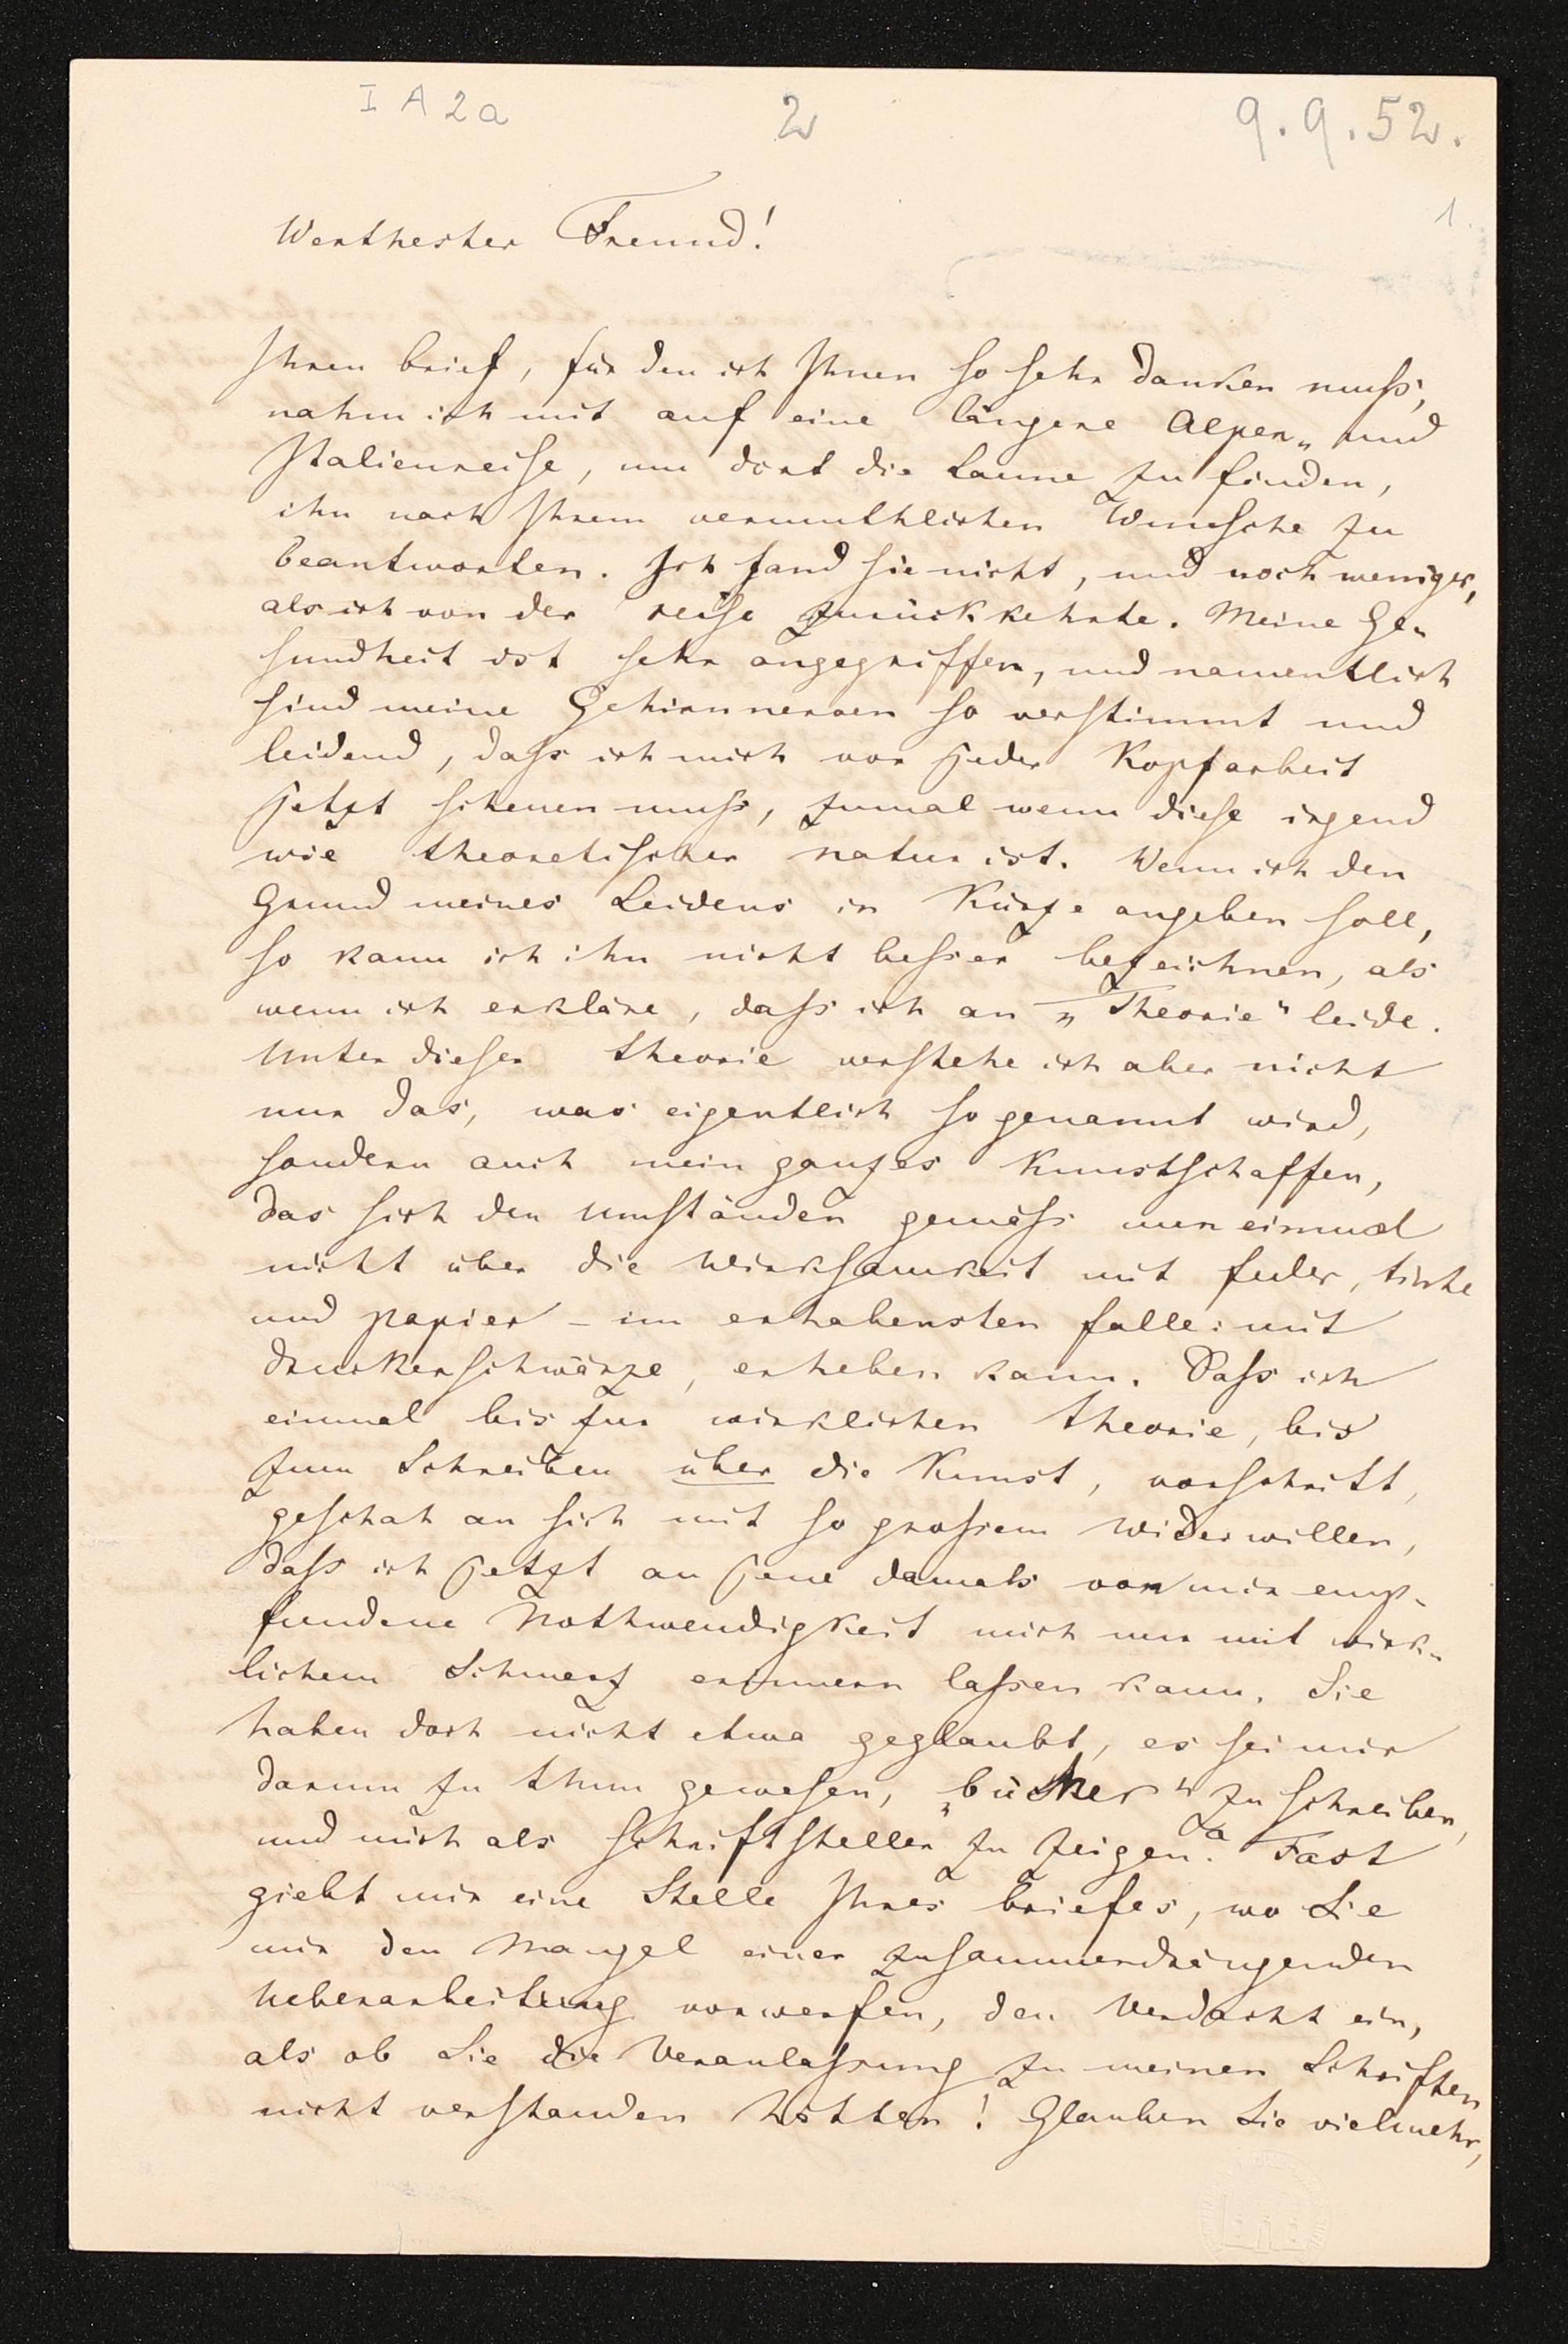 I A 2a
2
9.9.52.
1.
Werthester Freund!
Ihren brief, für den ich Ihnen so sehr danken muß,
nahm ich mit auf eine längere Alpen„ und
Italienreise, um dort die Laune zu finden,
ihn nach Ihrem vermuthlichen Wunsche zu
beantworten. Ich fand sie nicht, und noch weniger,
als ich von der reise zurückkehrte. Meine Ge„
sundheit ist sehr angegriffen, und namentlich
sind meine Gehirnnerven so verstimmt und
leidend, daß ich mich vor jeder Kopfarbeit
jetzt scheuen muß, zumal wenn diese irgend
wie theoretischer natur ist. Wenn ich den
Grund meines Leidens in Kürze angeben soll,
so kann ich ihn nicht besser bezeichnen, als
wenn ich erkläre, daß ich an „Theorie" leide.
Unter dieser theorie verstehe ich aber nicht
nur das, was eigentlich so genannt wird,
sondern auch mein ganzes Kunstschaffen,
das sich den Umständen gemäß nun einmal
nicht über die Wirksamkeit mit feder, tinte
und papier – im erhabensten falle: mit
druckerschwärze, erheben kann. Daß ich
einmal bis zur wirklichen theorie, bis
zum Schreiben über die Kunst, vorschritt,
geschah an sich mit so großem Widerwillen,
daß ich jetzt an jene damals von mir emp-
fundene Nothwendigkeit mich nur mit wirk„
lichem Schmerz erinnern laßen kann. Sie
haben doch nicht etwa geglaubt, es sei mir
darum zu thun gewesen, „bücher" zu schreiben,
und mich als Schriftsteller zu zeigen? Fast
giebt mir eine Stelle Ihres briefes, wo Sie
mir den Mangel einer zusammendrängenden
Ueberarbeitung vorwerfen, den Verdacht ein,
als ob Sie die Veranlaßung zu meinen Schriften
nicht verstanden hätten! Glauben Sie vielmehr,